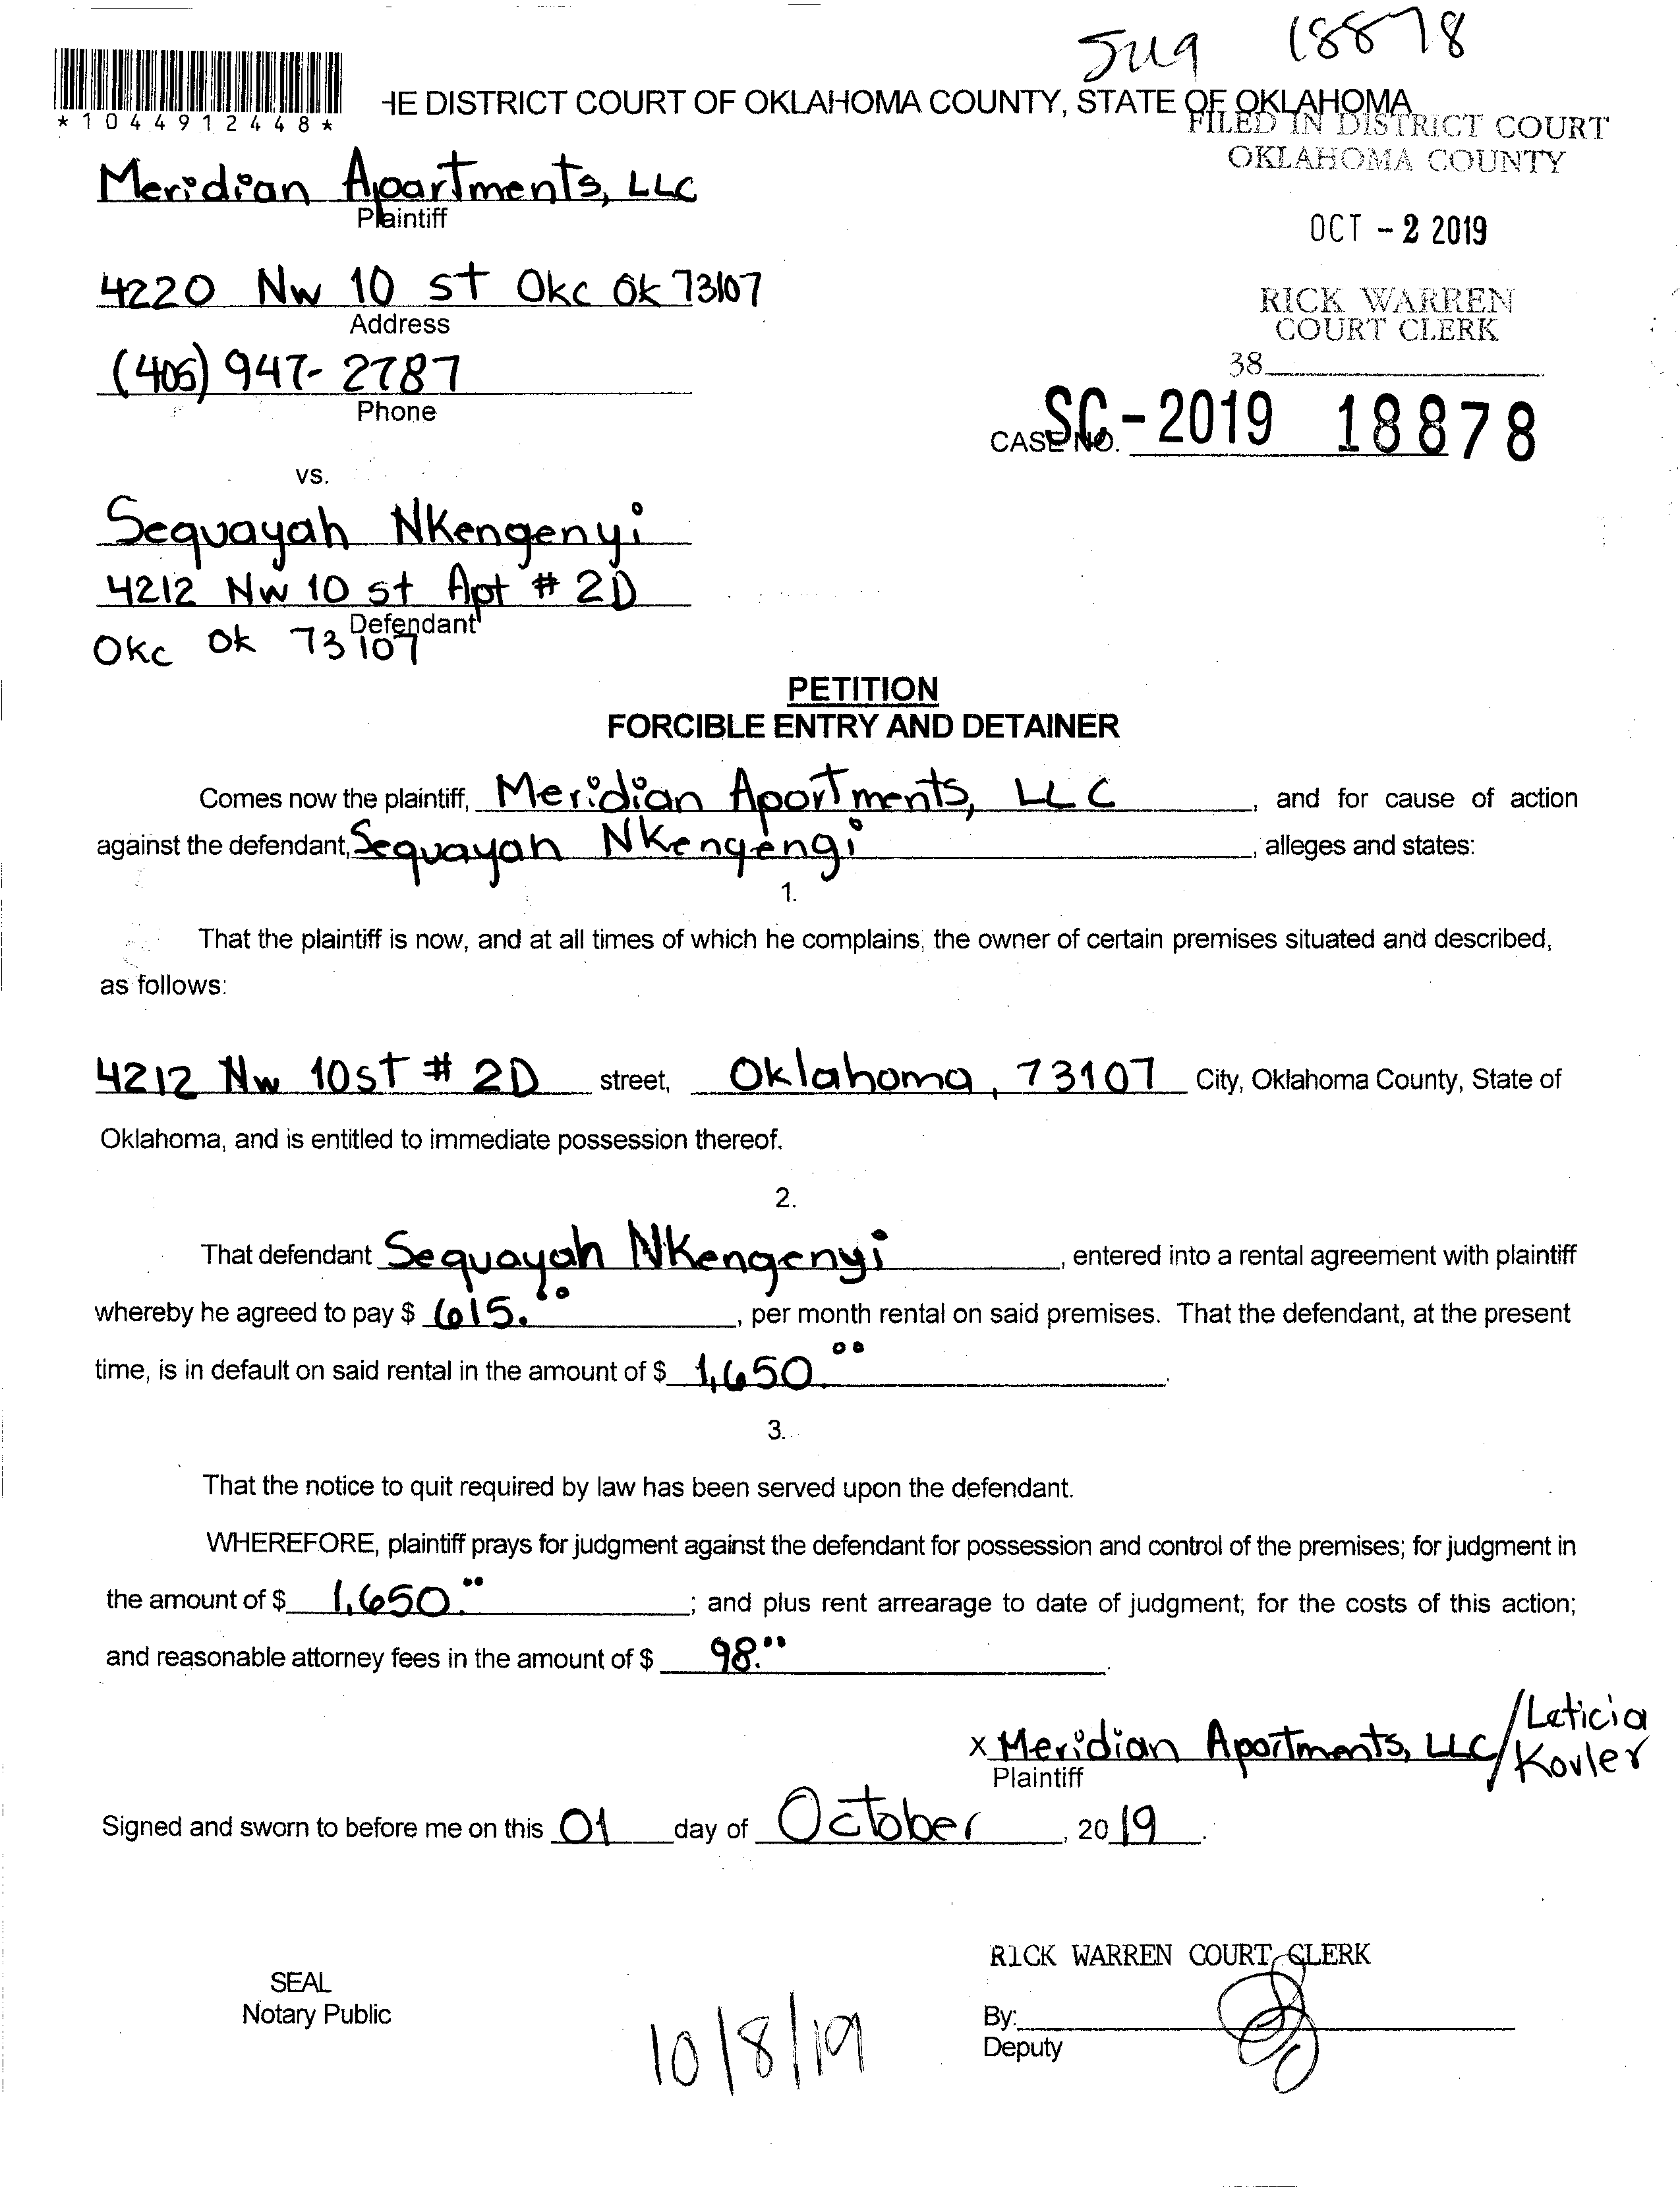 Jug 18878
*1044912448*
HE DISTRICT COURT OF OKLAHOMA COUNTY, STATE OF OKLAHOMA
FILED IN DISTRICT COURT
OKLAHOMA COUNTY
Meridian Apartments, LLC
Plaintiff
OCT - 2 2019
4220 NW 10 st Okc Ok 73107
Address
RICK WARREN
COURT CLERK
(405) 947-2787
Phone
38
CASE NO. SC - 2019 18878
vs.
Sequayah Nkengenyi
4212 NW 10 st Apt # 2D
Defendant
Okc Ok 73107
PETITION
FORCIBLE ENTRY AND DETAINER
Comes now the plaintiff, Meridian Apartments, LLC, and for cause of action
against the defendant, Sequayah Nkengengi, alleges and states:
1.
That the plaintiff is now, and at all times of which he complains, the owner of certain premises situated and described,
as follows:
4212 NW 10 ST # 2D street, Oklahoma, 73107 City, Oklahoma County, State of
Oklahoma, and is entitled to immediate possession thereof.
2.
That defendant Sequayah Nkengenyi, entered into a rental agreement with plaintiff
whereby he agreed to pay $ 615.00, per month rental on said premises. That the defendant, at the present
time, is in default on said rental in the amount of $ 1,650.00.
3.
That the notice to quit required by law has been served upon the defendant.
WHEREFORE, plaintiff prays for judgment against the defendant for possession and control of the premises; for judgment in
the amount of $ 1,650.00; and plus rent arrearage to date of judgment; for the costs of this action;
and reasonable attorney fees in the amount of $ 98.00.
x Meridian Apartments, LLC/Leticia Kovler
Plaintiff
Signed and sworn to before me on this 01 day of October, 2019.
RICK WARREN COURT CLERK
SEAL
Notary Public
10/8/19
By:
Deputy